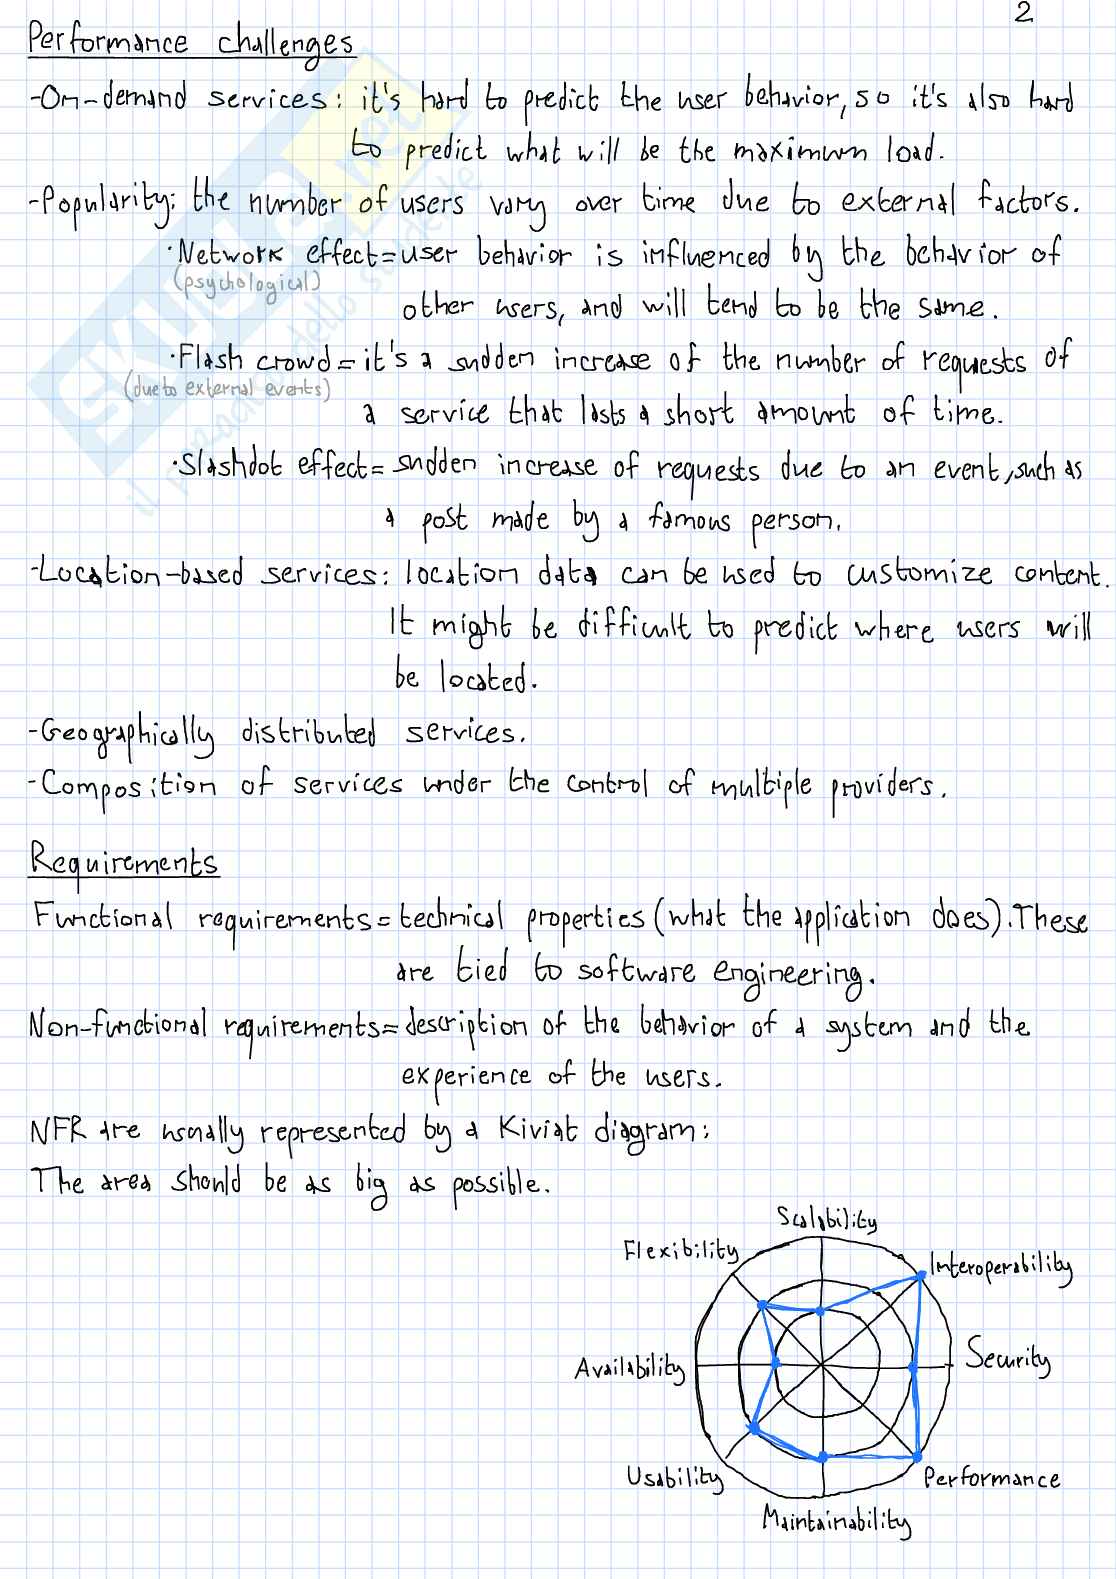 2
Performance challenges
-On-demand services: it's hard to predict the user behavior, so it's also hard
to predict what will be the maximum load.
-Popularity: the number of users vary over time due to external factors.
·Network effect=user behavior is influenced by the behavior of
(psychological)
other users, and will tend to be the same.
·Flash crowd=it's a sudden increase of the number of requests of
(due to external events)
a service that lasts a short amount of time.
·Slashdot effect=sudden increase of requests due to an event, such as
a post made by a famous person.
-Location-based services: location data can be used to customize content.
It might be difficult to predict where users will
be located.
-Geographically distributed services.
-Composition of services under the control of multiple providers.
Requirements
Functional requirements=technical properties (what the application does). These
are tied to software engineering.
Non-functional requirements=description of the behavior of a system and the
experience of the users.
NFR are usually represented by a Kiviat diagram:
The area should be as big as possible.
Scalability
Flexibility
Interoperability
Availability
Security
Usability
Performance
Maintainability
SKUOLA.net
il paradiso dello studente